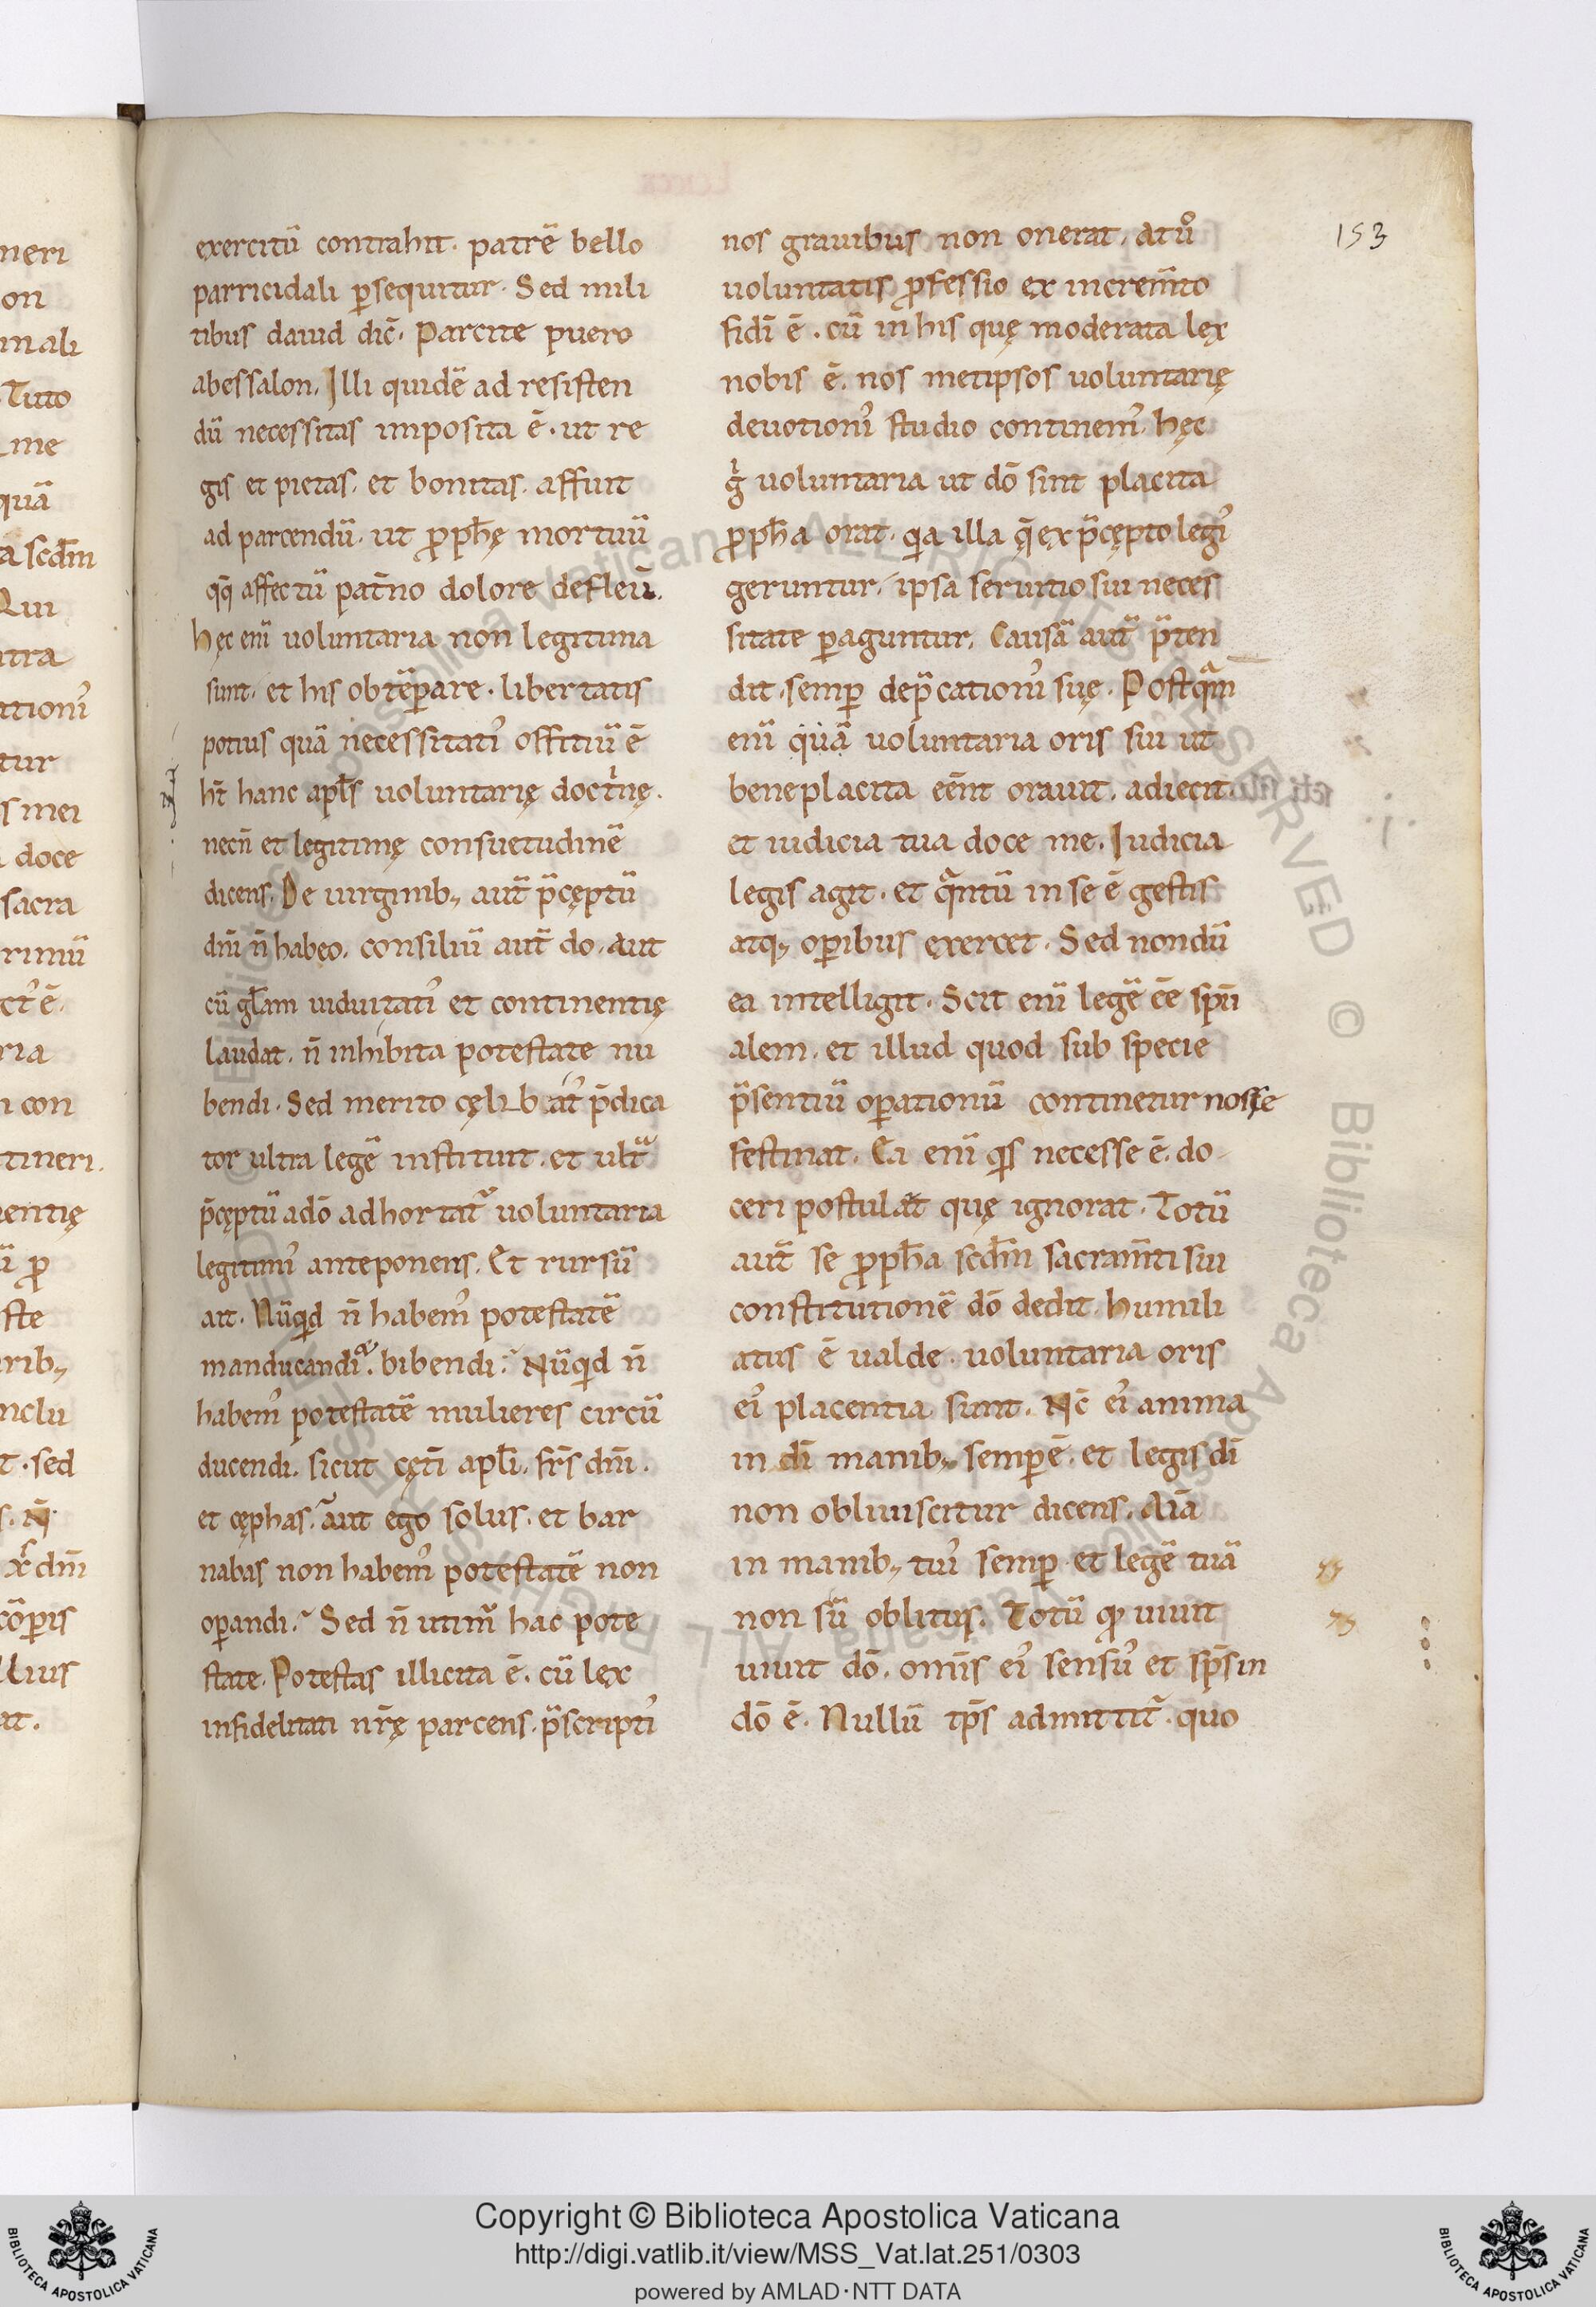 153
exercitū contrahit. patrē bello
parricidali p̲sequitur. Sed mili
tibus dauid dic̄. Parcite puero
abessalon. Illi quidē ad resisten
dū necessitas imposita ē. ut re
gis et pietas. et bonitas. affuit
ad parcendū. ut ꝓph̄ę mortuū
qq̄ affectū pat̄no dolore defleū.
hęc enī uoluntaria non legitima
sunt. et his obtēꝑare. libertatis
potius quā necessitatiꝰ offitiū ē
ht̄ hanc apl̄s uoluntarię doct̓nę.
necn̄ et legitimę consuetudinē
dicens. De uirginib; aut̄ p̄cęptū
dn̄i n̄ habeo. consiliū aut̄ do. aut
cū gl̄am uiduitatiꝰ et continentię
laudat. n̄ inhibita potestate nu
bendi. Sed merito cęlibatꝰ p̄dica
tor ultra legē instituit. et ult̄
p̄cęptū adō adhortat᷑ uoluntaria
legitimiꝰ anteponens. Et rursū
ait. Nūqid n̄ habemꝰ potestatē
manducandi & bibendi? Nūqid n̄
habemꝰ potestatē mulieres circū
ducendi. sicut cęt̄i apl̄i. fr̄s dn̄i.
et cęphas. aut ego solus. et bar
nabas non habemꝰ potestatē non
oꝑandi? Sed n̄ utimur̄ hac pote
state. Potestas illicita ē. cū lex
infidelitati nr̄ę parcens. p̄scriptiꝰ
nos grauibus non onerat. at uͦ
uoluntatis ꝓfessio ex increm̄to
fidī ē. cū in his quę moderata lex
nobis ē. nos metipsos uoluntarię
deuotioniꝰ studio continemꝰ. hęc
g̓ uoluntaria ut dō sint placita
ꝓph̄a orat. qia illa q̄ ex p̄cępto legiꝰ
geruntur. ipsa seruitio sui neces
sitate ꝑaguntur. Causā aut̄ p̄ten
dit. semꝑ dep̄cationiꝰ suę. Postqām
enī quā uoluntaria oris sui ut
beneplacita eēnt orauit. adiecit
et iudicia tua doce me. Iudicia
legis agit. et qāntū in se ē gestis
atq; oꝑibus exercet. Sed nondū
ea intelligit. Scit enī legē ēe spū
alem. et illud quod sub specie
p̄sentiū oꝑationū continetur nosse
festinat. Ea enī qis necesse ē. do
ceri postulat quę ignorat. Totū
aut̄ se ꝓph̄a scd̄m sacram̄ti sui
constitutionē dō dedit. humili
atus ē ualde. uoluntaria oris
eiꝰ placentia sunt. Nc̄ eiꝰ anima
in dī manib; semꝑ ē. et legis dī
non obliuiscitur dicens. Aīa
in manib; tuiꝰ semꝑ. et legē tuā
non sū oblitus. Totū qͥ uiuit
uiuit dō. omīs eiꝰ sensuꝰ et sp̄s in
dō ē. Nullū tp̄s admittit᷑. quo
Copyright © Biblioteca Apostolica Vaticana
http://digi.vatlib.it/view/MSS_Vat.lat.251/0303
powered by AMLAD·NTT DATA